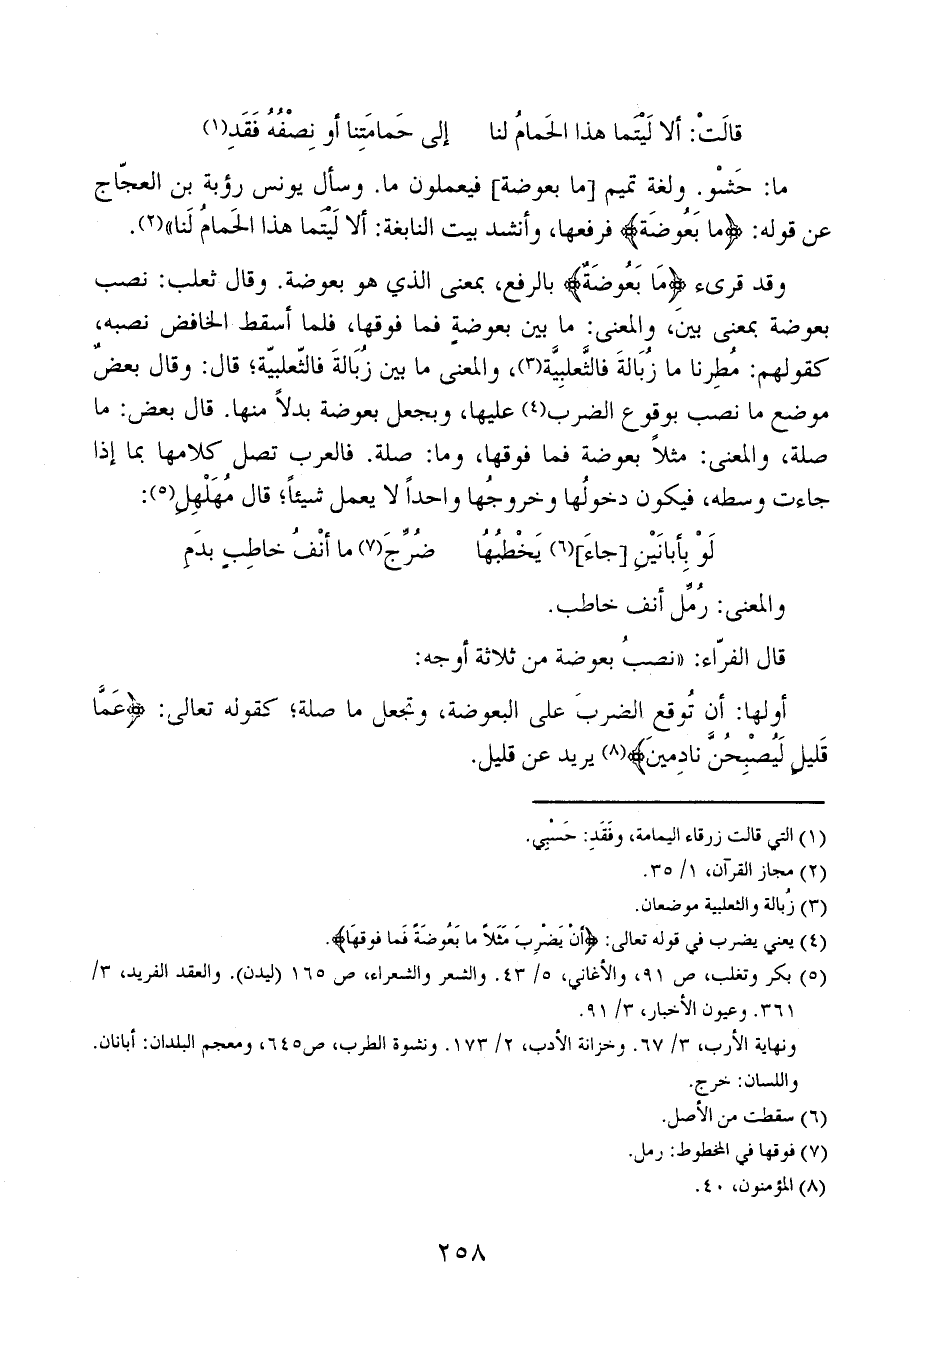 قالَتْ: ألا لَيْتَما هذا الحَمامُ لنا إلى حَمامَتِنا أو نِصْفُهُ فَقَدِ(١)
ما: حَشْو. ولغة تميم [ما بعوضة] فيعملون ما. وسأل يونس رؤبة بن العجّاج
عن قوله: ﴿ما بَعُوضَة﴾ فرفعها، وأنشد بيت النابغة: ألا لَيْتَما هذا الحَمامُ لَنا»(٢).
وقد قرىء ﴿مَا بَعُوضَةٌ﴾ بالرفع، بمعنى الذي هو بعوضة. وقال ثعلب: نصب
بعوضة بمعنى بينَ، والمعنى: ما بين بعوضةٍ فما فوقها، فلما أسقط الخافض نصبه،
كقولهم: مُطِرنا ما زُبَالةَ فالثَّعلبِيَّة(٣)، والمعنى ما بين زُبَالةَ فالثّعلبيّة؛ قال: وقال بعضٌ
موضع ما نصب بوقوع الضرب(٤) عليها، ويجعل بعوضة بدلاً منها. قال بعض: ما
صلة، والمعنى: مثلاً بعوضة فما فوقها، وما: صلة. فالعرب تصل كلامها بما إذا
جاءت وسطه، فيكون دخولُها وخروجُها واحداً لا يعمل شيئاً؛ قال مُهَلْهِلِ(٥):
لَوْ بِأَبانَيْنِ [جاءَ](٦) يَخْطبُهُا ضُرِّجَ(٧) ما أنْفُ خاطبٍ بدَمِ
والمعنى: رُمِّل أنف خاطب.
قال الفرّاء: «نصبُ بعوضة من ثلاثة أوجه:
أولها: أن تُوقع الضربَ على البعوضة، وتجعل ما صلة؛ كقوله تعالى: ﴿عَمَّا
قَليلٍ لَيُصْبِحُنَّ نادِمينَ﴾(٨) يريد عن قليل.
(١) التي قالت زرقاء اليمامة، وفَقَدِ: حَسْبِي.
(٢) مجاز القرآن، ١/ ٣٥.
(٣) زُبالة والثعلبية موضعان.
(٤) يعني يضرب في قوله تعالى: ﴿أنْ يَضْرِبَ مَثَلاً ما بَعُوضَةً فَما فوقهَا﴾.
(٥) بكر وتغلب، ص ٩١، والأغاني، ٥/ ٤٣. والشعر والشعراء، ص ١٦٥ (ليدن). والعقد الفريد، ٣/
٣٦١. وعيون الأخبار، ٣/ ٩١.
ونهاية الأرب، ٣/ ٦٧. وخزانة الأدب، ٢/ ١٧٣. ونشوة الطرب، ص٦٤٥، ومعجم البلدان: أبانان.
واللسان: خرج.
(٦) سقطت من الأصل.
(٧) فوقها في المخطوط: رمل.
(٨) المؤمنون، ٤٠.
٢٥٨